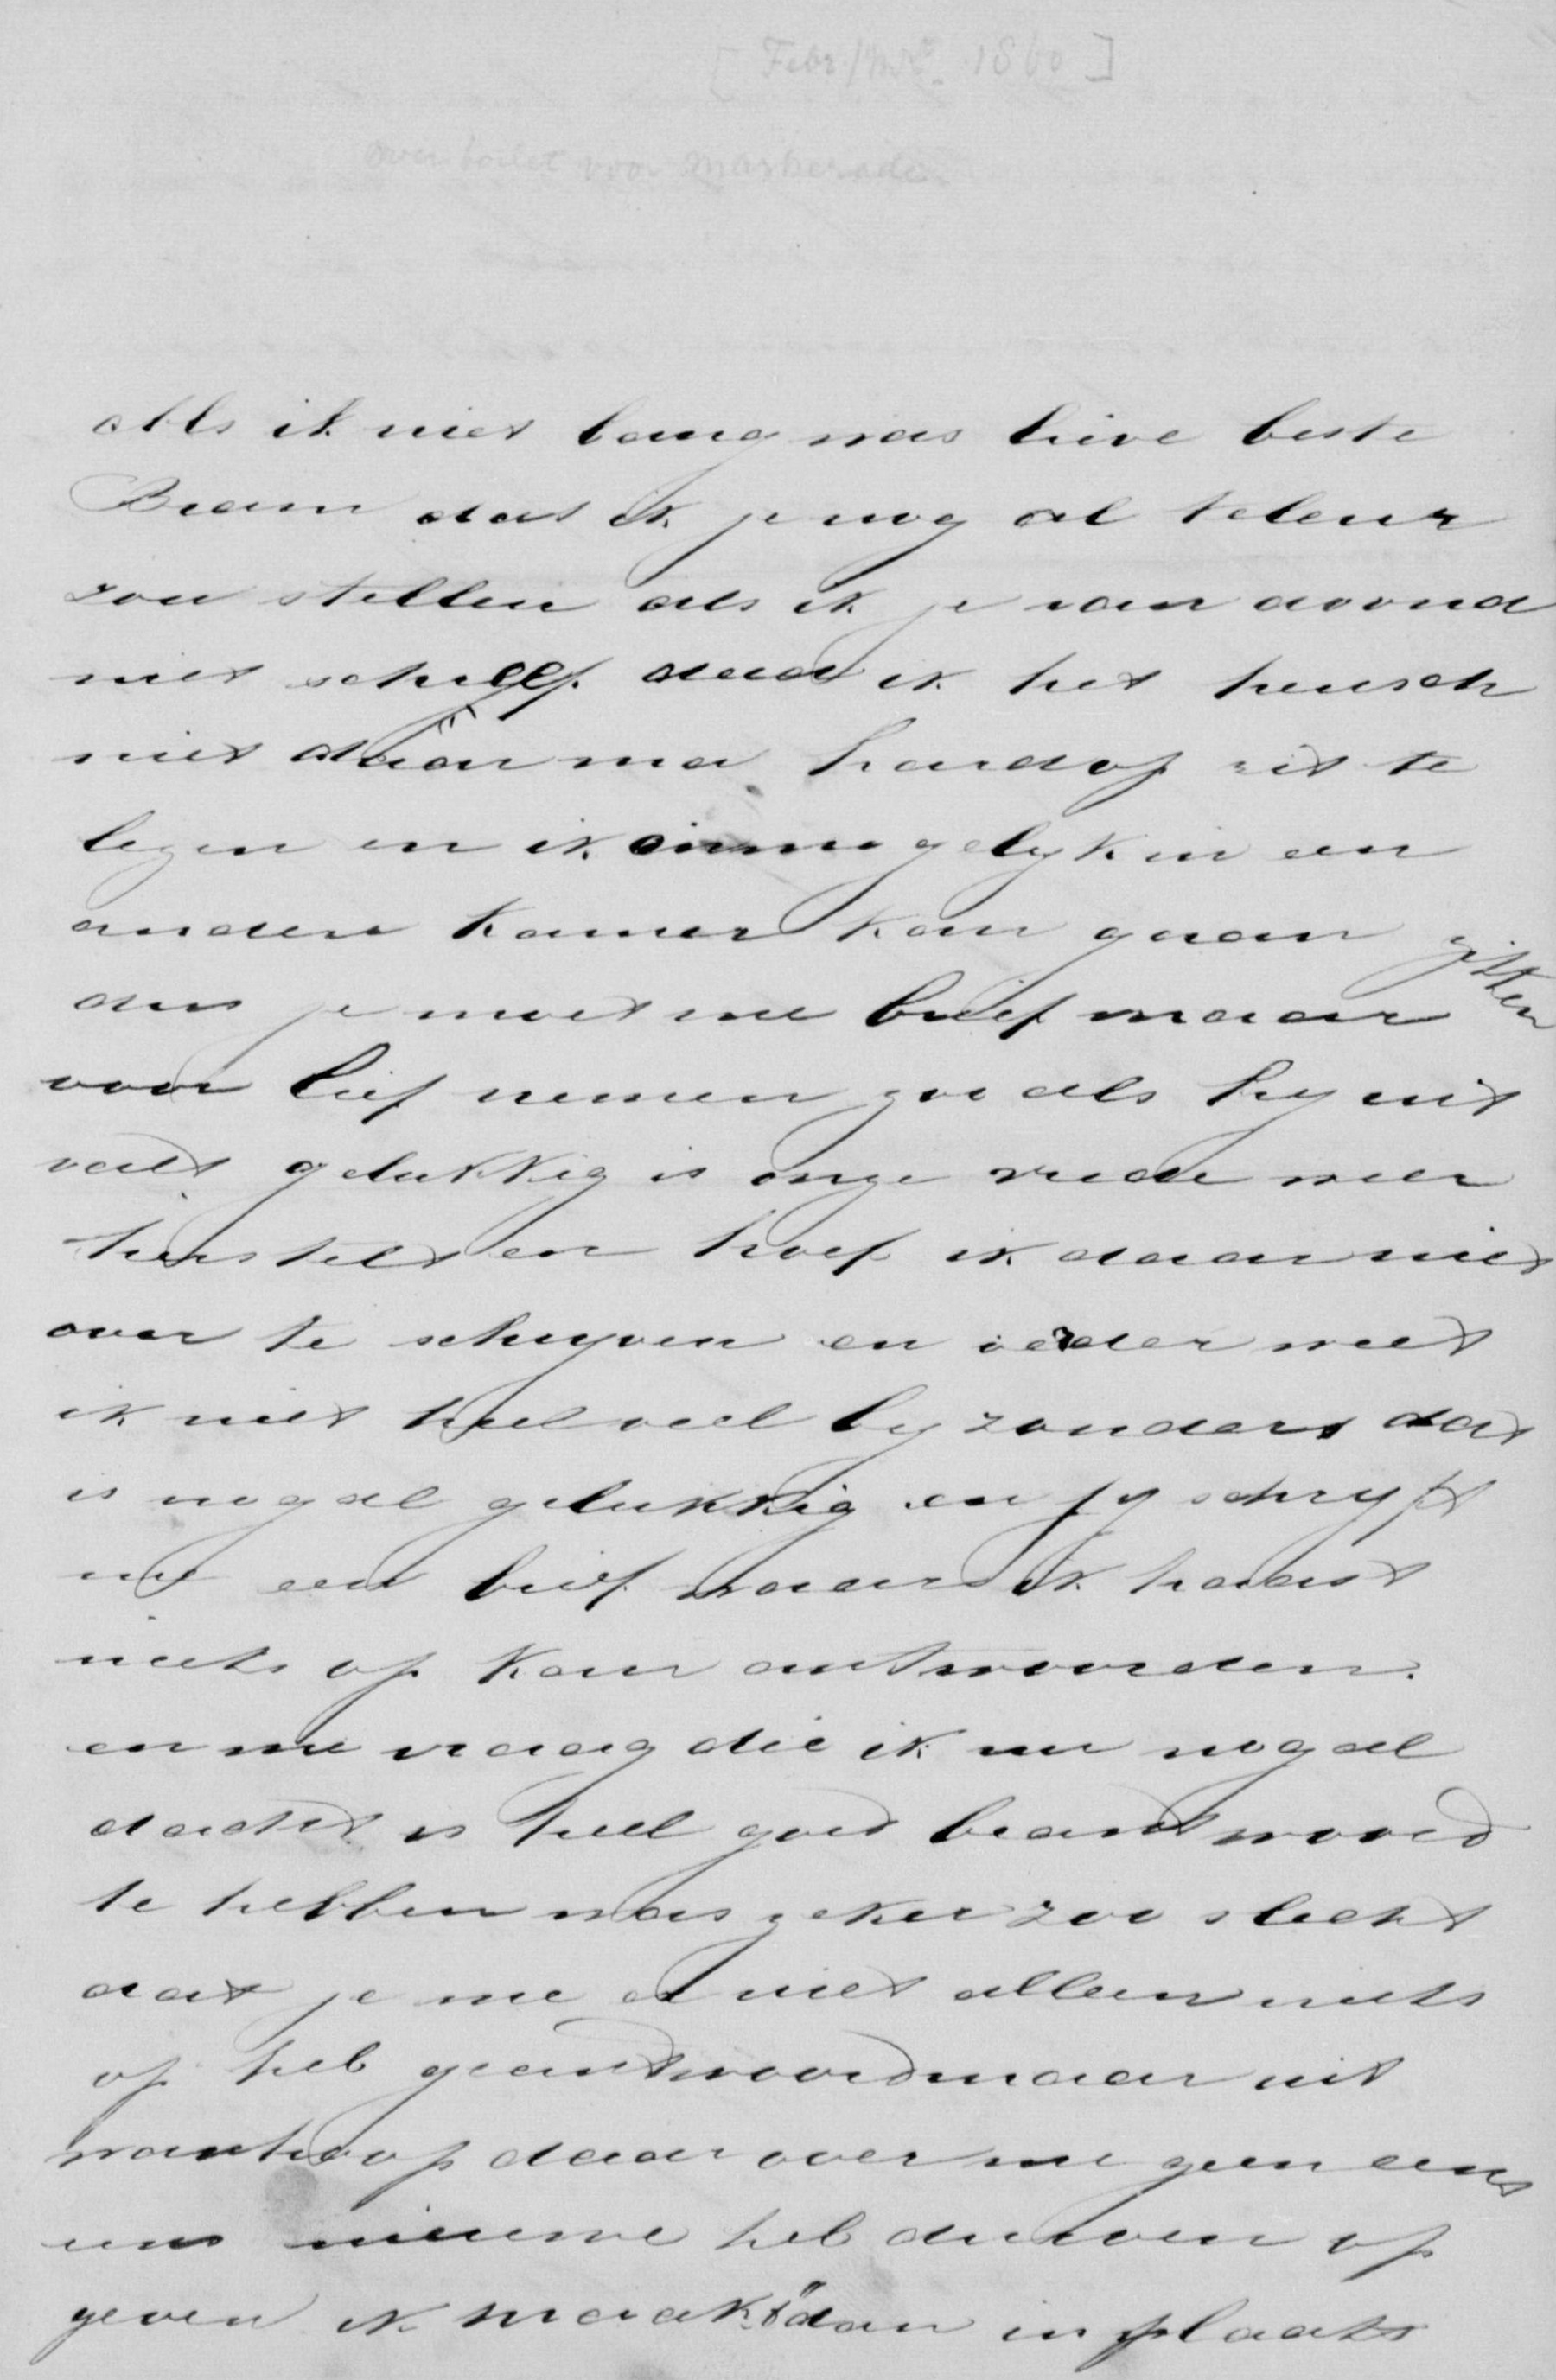 [Febr/Mrt. 1860]
over toilet voor maskerade
Als ik niet bang was lieve beste
Bram dat ik je nog al teleur
zou stellen als ik je van avond
niet schreef deed ik het heusch
niet daar ma hardop zit te
lezen en ik onmogelyk in een
andere kamer kan gaan zitten
dus je moet me brief maar
voor lief nemen zoo als hy uit
valt gelukkig is onze vrede weer
hersteld en hoef ik daar niet
over te schryven en verder weet
ik niet heel veel byzonders dat
is nog al gelukkig en jy schryft
me een brief waar ik haast
niets op kan antwoorden.
en me vraag die ik nu nog al
dacht is heel goed beantwoord
te hebben was zeker zoo slecht
dat je me er niet alleen niets
op heb geantwoord maar uit
wanhoop daar over me geen eens
een nieuwe heb durven op
geven ik maak dan in plaats